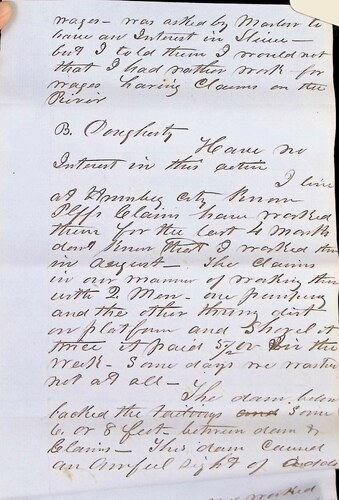 wages - was asked by Marlow to
have an Interest in Sluice -
but I told them I would not
that I had rather work for
wages, having Claims on the
River
B. Dougherty
Have no
Interest in this action
I live
at City Know
Plffs Claims have worked
them for the last 4 Month
dont Know that I worked them
in August - The Claims
in our manner of working them
with 2 Men - one pumping
and the other throwing dirt
on platform and Shovel it
twice it paid in the
week - Some days we washed
not at all -
The dam below
backed the tailings and Some
6 or 8 feet - between dam &
Claims - This dam Caused
an awful Sight of
worked